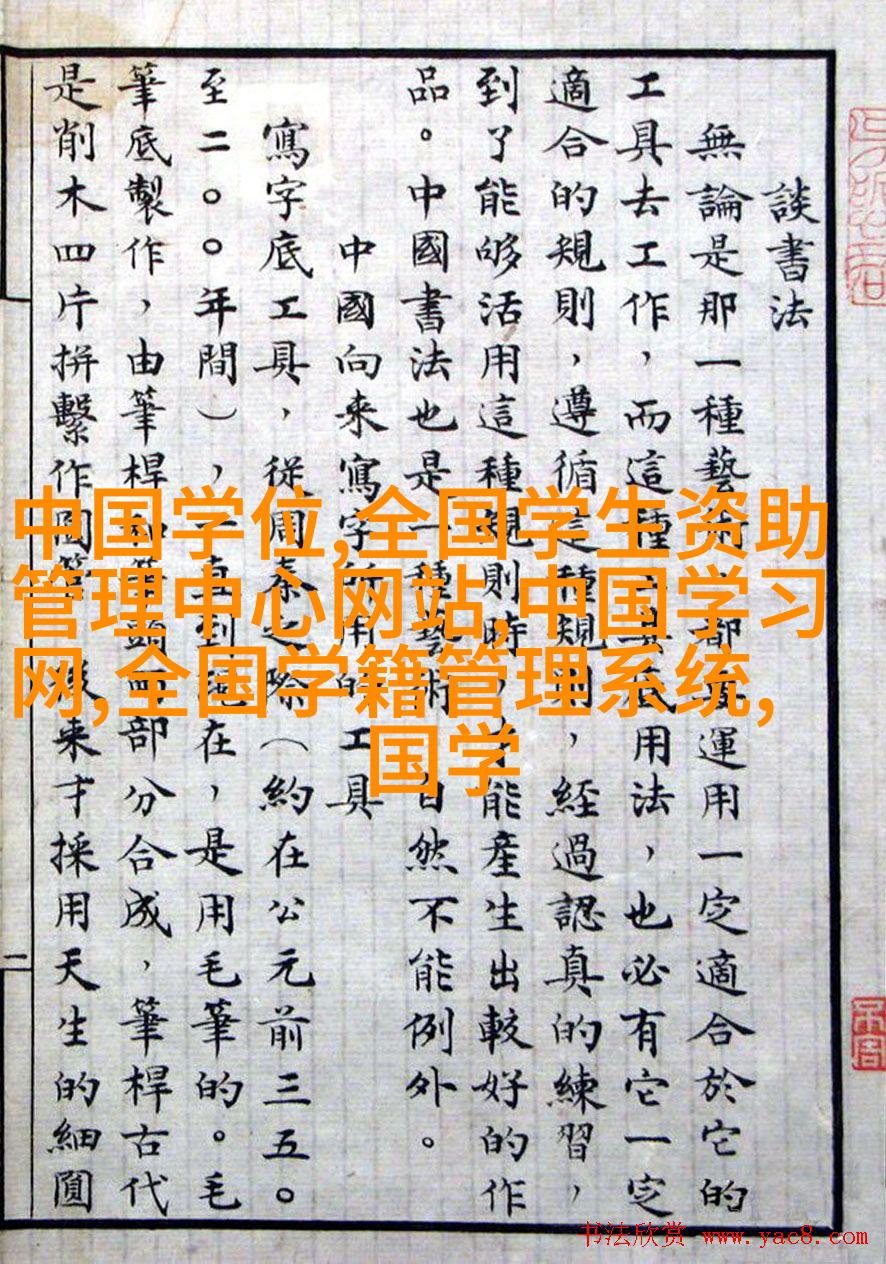 談書法
無論是那一種藝術，都要運用一定適合於它的
工具去工作，而這種工具底用法，也必有它一定
適合的規則，遵循這種規則，經過認真的練習，
到了能够活用這種規則時，才能產生出較好的作
品。中國書法也是一種藝術，自然不能例外。
中國向来寫字所用的工具
寫字底工具，從周秦之際（約在公元前三五〇
至二〇〇年間），一直到現在，是用毛筆的。毛
筆底製作，由筆桿和筆頭兩部分合成，筆桿古代
是削木四片拼繫作圓筒，後来才採用天生的細圓
二
中国学位,全国学生资助
管理中心网站,中国学习
网,全国学籍管理系统,
国学
书法欣赏 www.yac8.com